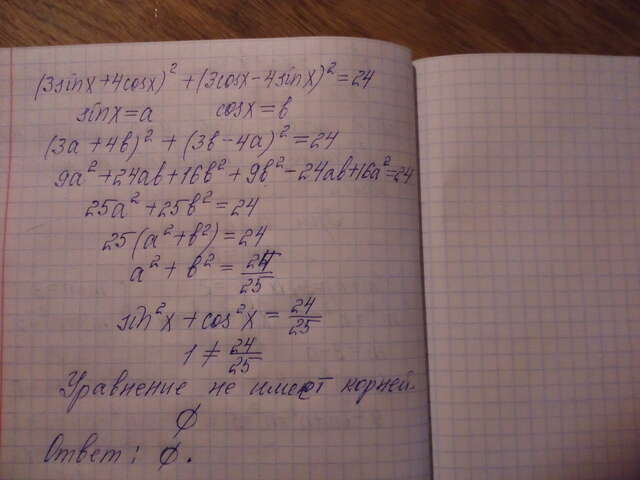 (3sinx+4cosx)² + (3cosx-4sinx)² = 24
sinx = a cosx = в
(3a + 4в)² + (3в - 4a)² = 24
9a² + 24aв + 16в² + 9в² - 24aв + 16a² = 24
25a² + 25в² = 24
25(a² + в²) = 24
a² + в² = 24/25
sin²x + cos²x = 24/25
1 ≠ 24/25
Уравнение не имеет корней.
∅
Ответ: ∅.